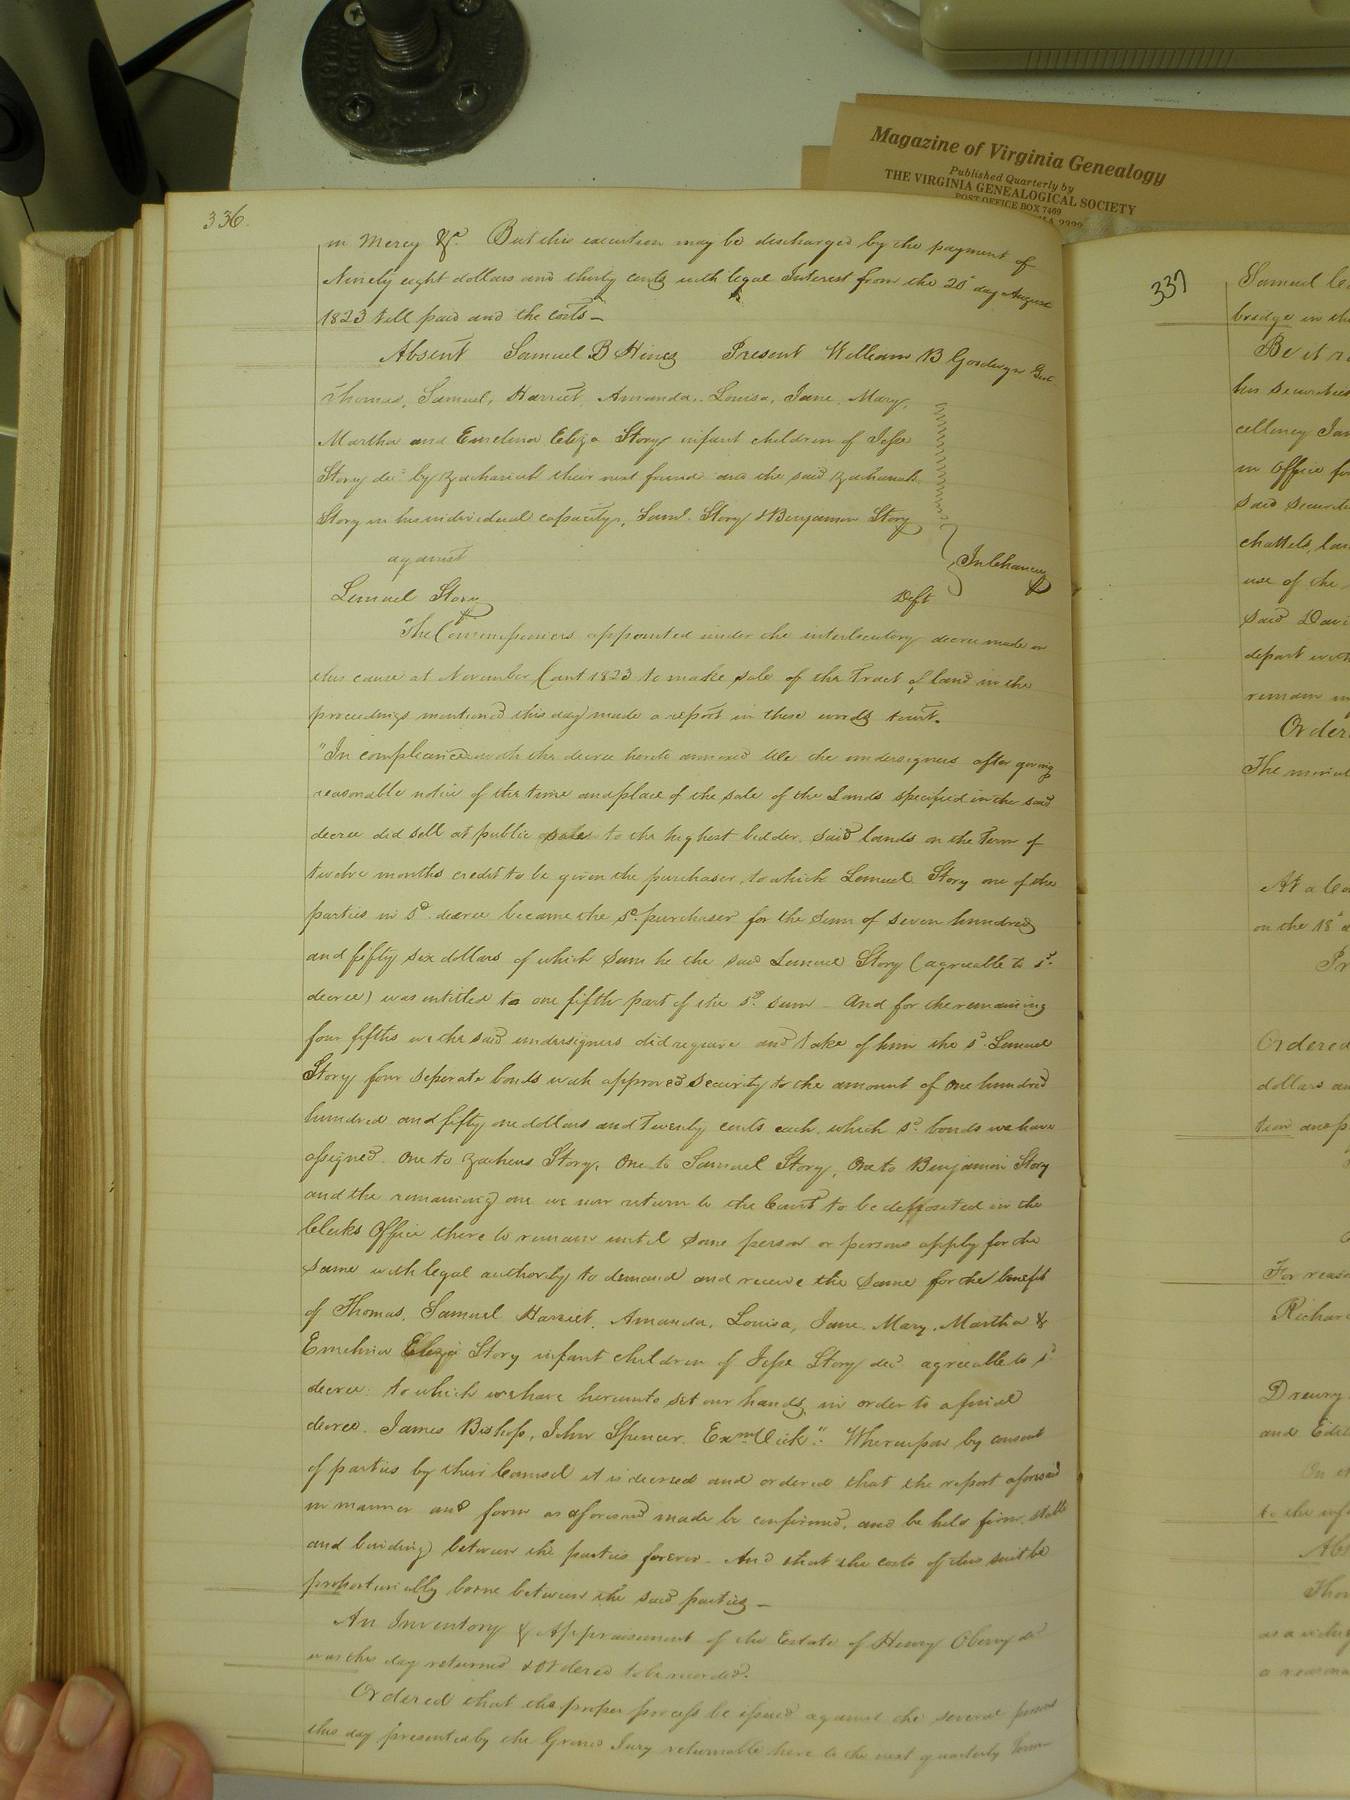 Magazine of Virginia Genealogy
Published Quarterly by
THE VIRGINIA GENEALOGICAL SOCIETY
POST OFFICE BOX 7469
336.
in Mercy &c. But this execution may be discharged by the payment of
Ninety eight dollars and thirty cents with legal Interest from the 20th day August
1823 till paid and the costs –
Absent Samuel B Hines Present William B Goodwyn Gent
Thomas, Samuel, Harriet, Amanda, Louisa, Jane, Mary,
Martha and Emelina Eliza Story infant children of Jesse
Story decd by Zachariah their next friend and the said Zachariah
Story in his individual capacity, Saml. Story & Benjamin Story
against
Lemuel Story Deft
In Chancery
The Commissioners appointed under the interlocutory decree made in
this cause at November Court 1823 to make sale of the Tract of land in the
proceedings mentioned this day made a report in these words towit.
"In compliance with the decree hereto annexed We the undersigners after giving
reasonable notice of the time and place of the sale of the Lands specified in the said
decree did sell at public sale to the highest bidder, said lands on the Term of
twelve months credit to be given the purchaser, to which Lemuel Story one of the
parties in sd. decree became the sd. purchaser for the sum of seven hundred
and fifty six dollars of which sum he the said Lemuel Story (agreeable to sd.
decree) was intitled to one fifth part of the sd. sum – And for the remaining
four fifths we the said undersigners did require and take of him the sd. Lemuel
Story four seperate bonds with approved security to the amount of one hundred
hundred and fifty one dollars and Twenty cents each, which sd. bonds we have
assigned. One to Zacheus Story, One to Samuel Story, One to Benjamin Story
and the remaining one we now return to the Court to be deposited in the
Clerks Office there to remain until some person or persons apply for the
same with legal authority to demand and receive the same for the benefit
of Thomas, Samuel Harriet, Amanda, Louisa, Jane, Mary, Martha &
Emelina Eliza Story infant children of Jesse Story decd agreeable to sd
decree. to which we have hereunto set our hands, in order to a final
decree. James Bishop, John Spencer, Exm Vick". Whereupon by consent
of parties by their Counsel it is decreed and ordered that the report aforesaid
in manner and form as aforesaid made be confirmed, and be held firm, stable
and binding between the parties forever – And that the costs of this suit be
proportionally borne between the said parties –
An Inventory & Appraisement of the Estate of Henry Oberry decd
was this day returned & Ordered to be recorded.
Ordered that the proper process be issued against the several persons
this day presented by the Grand Jury returnable here to the next quarterly Term
337
Samuel
bridge in th
Be it r
his securities
cellency Jam
in Office fo
said securit
chattels, lan
use of the
said Davi
depart with
remain in
Order
The minu
At a Co
on the 18th d
Pr
Ordered
dollars an
tion
For reaso
Richard
Drewry
and
On
to the
Abs
Thom
a reasona